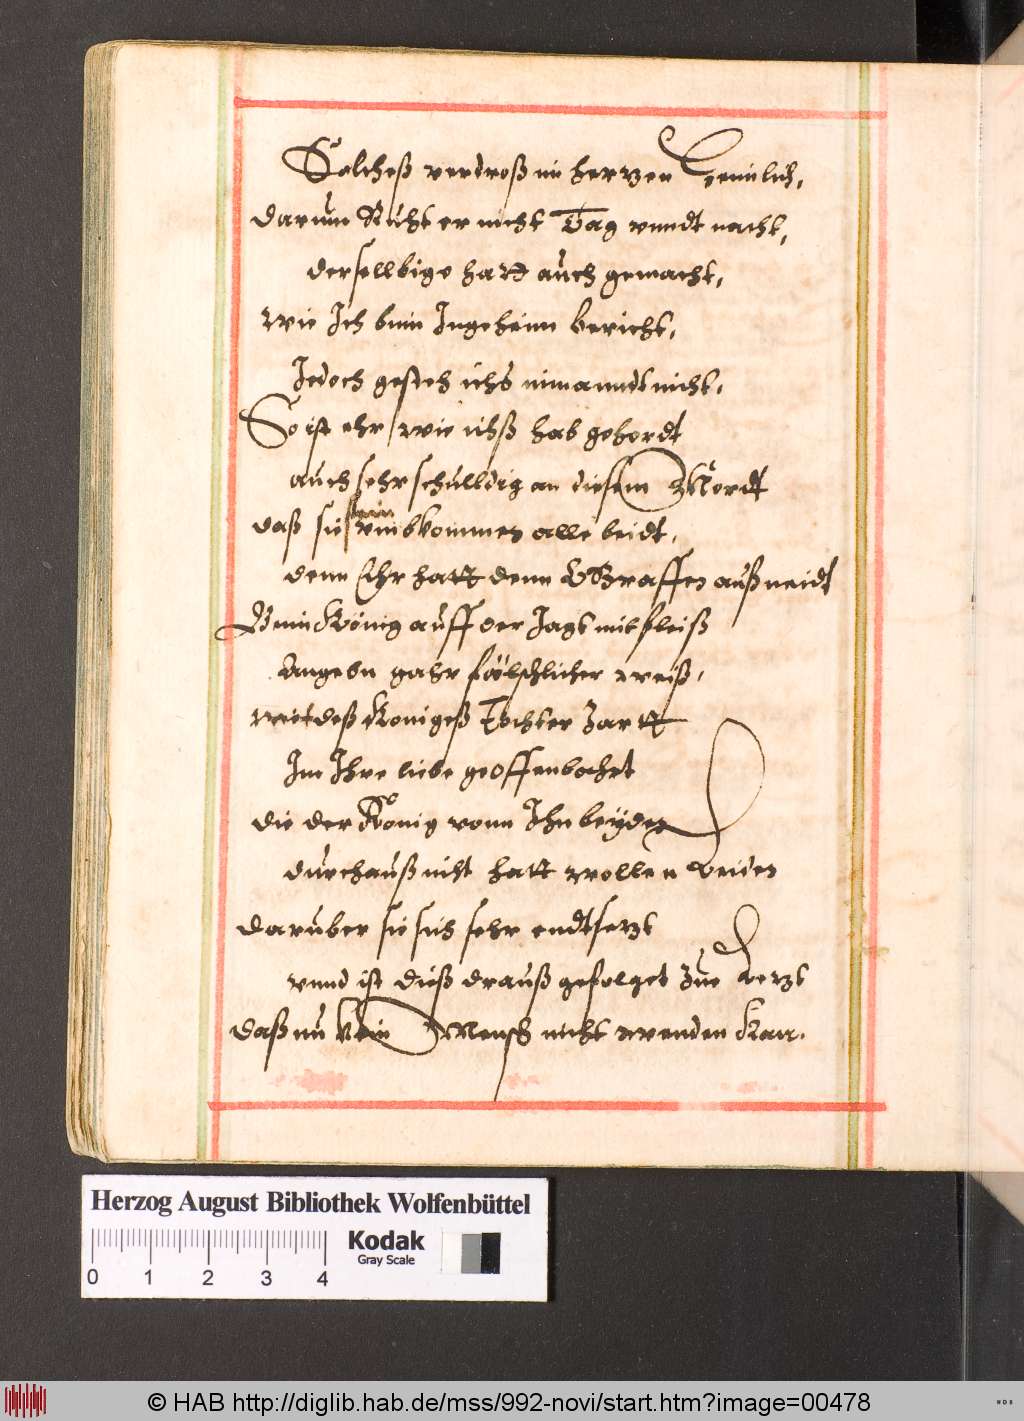 Solcheß verdroß im hertzen Heimlich,
darum Ruht er nicht Tag vnndt nacht,
dersellbige hatt auch gemacht,
wie Ich binn Ingeheim bericht,
Jedoch gesteh ichs nimanndt nicht,
So ist ehr wie ichß hab gehordt
auch sehr schulldig an diesem Mordt
daß sie sein vmbkommen alle beidt,
denn Ehr hatt denn Graffen auß neidt
Beim König auff der Jagt mit fleiß
Angebn gahr fälschlicher weiß,
mit deß Konigeß Tochter Zartt
Im Ihre liebe geoffenbahrt
die der König vonn Ihn beÿden
durchauß nicht hatt wollen Leiden
daruber sie sich sehr endtsetzt
vnnd ist dieß drauß gefolget zue Letzt
daß nu kein Mensch nicht wenden Kan.
Herzog August Bibliothek Wolfenbüttel
Kodak
Gray Scale
0 1 2 3 4
© HAB http://diglib.hab.de/mss/992-novi/start.htm?image=00478